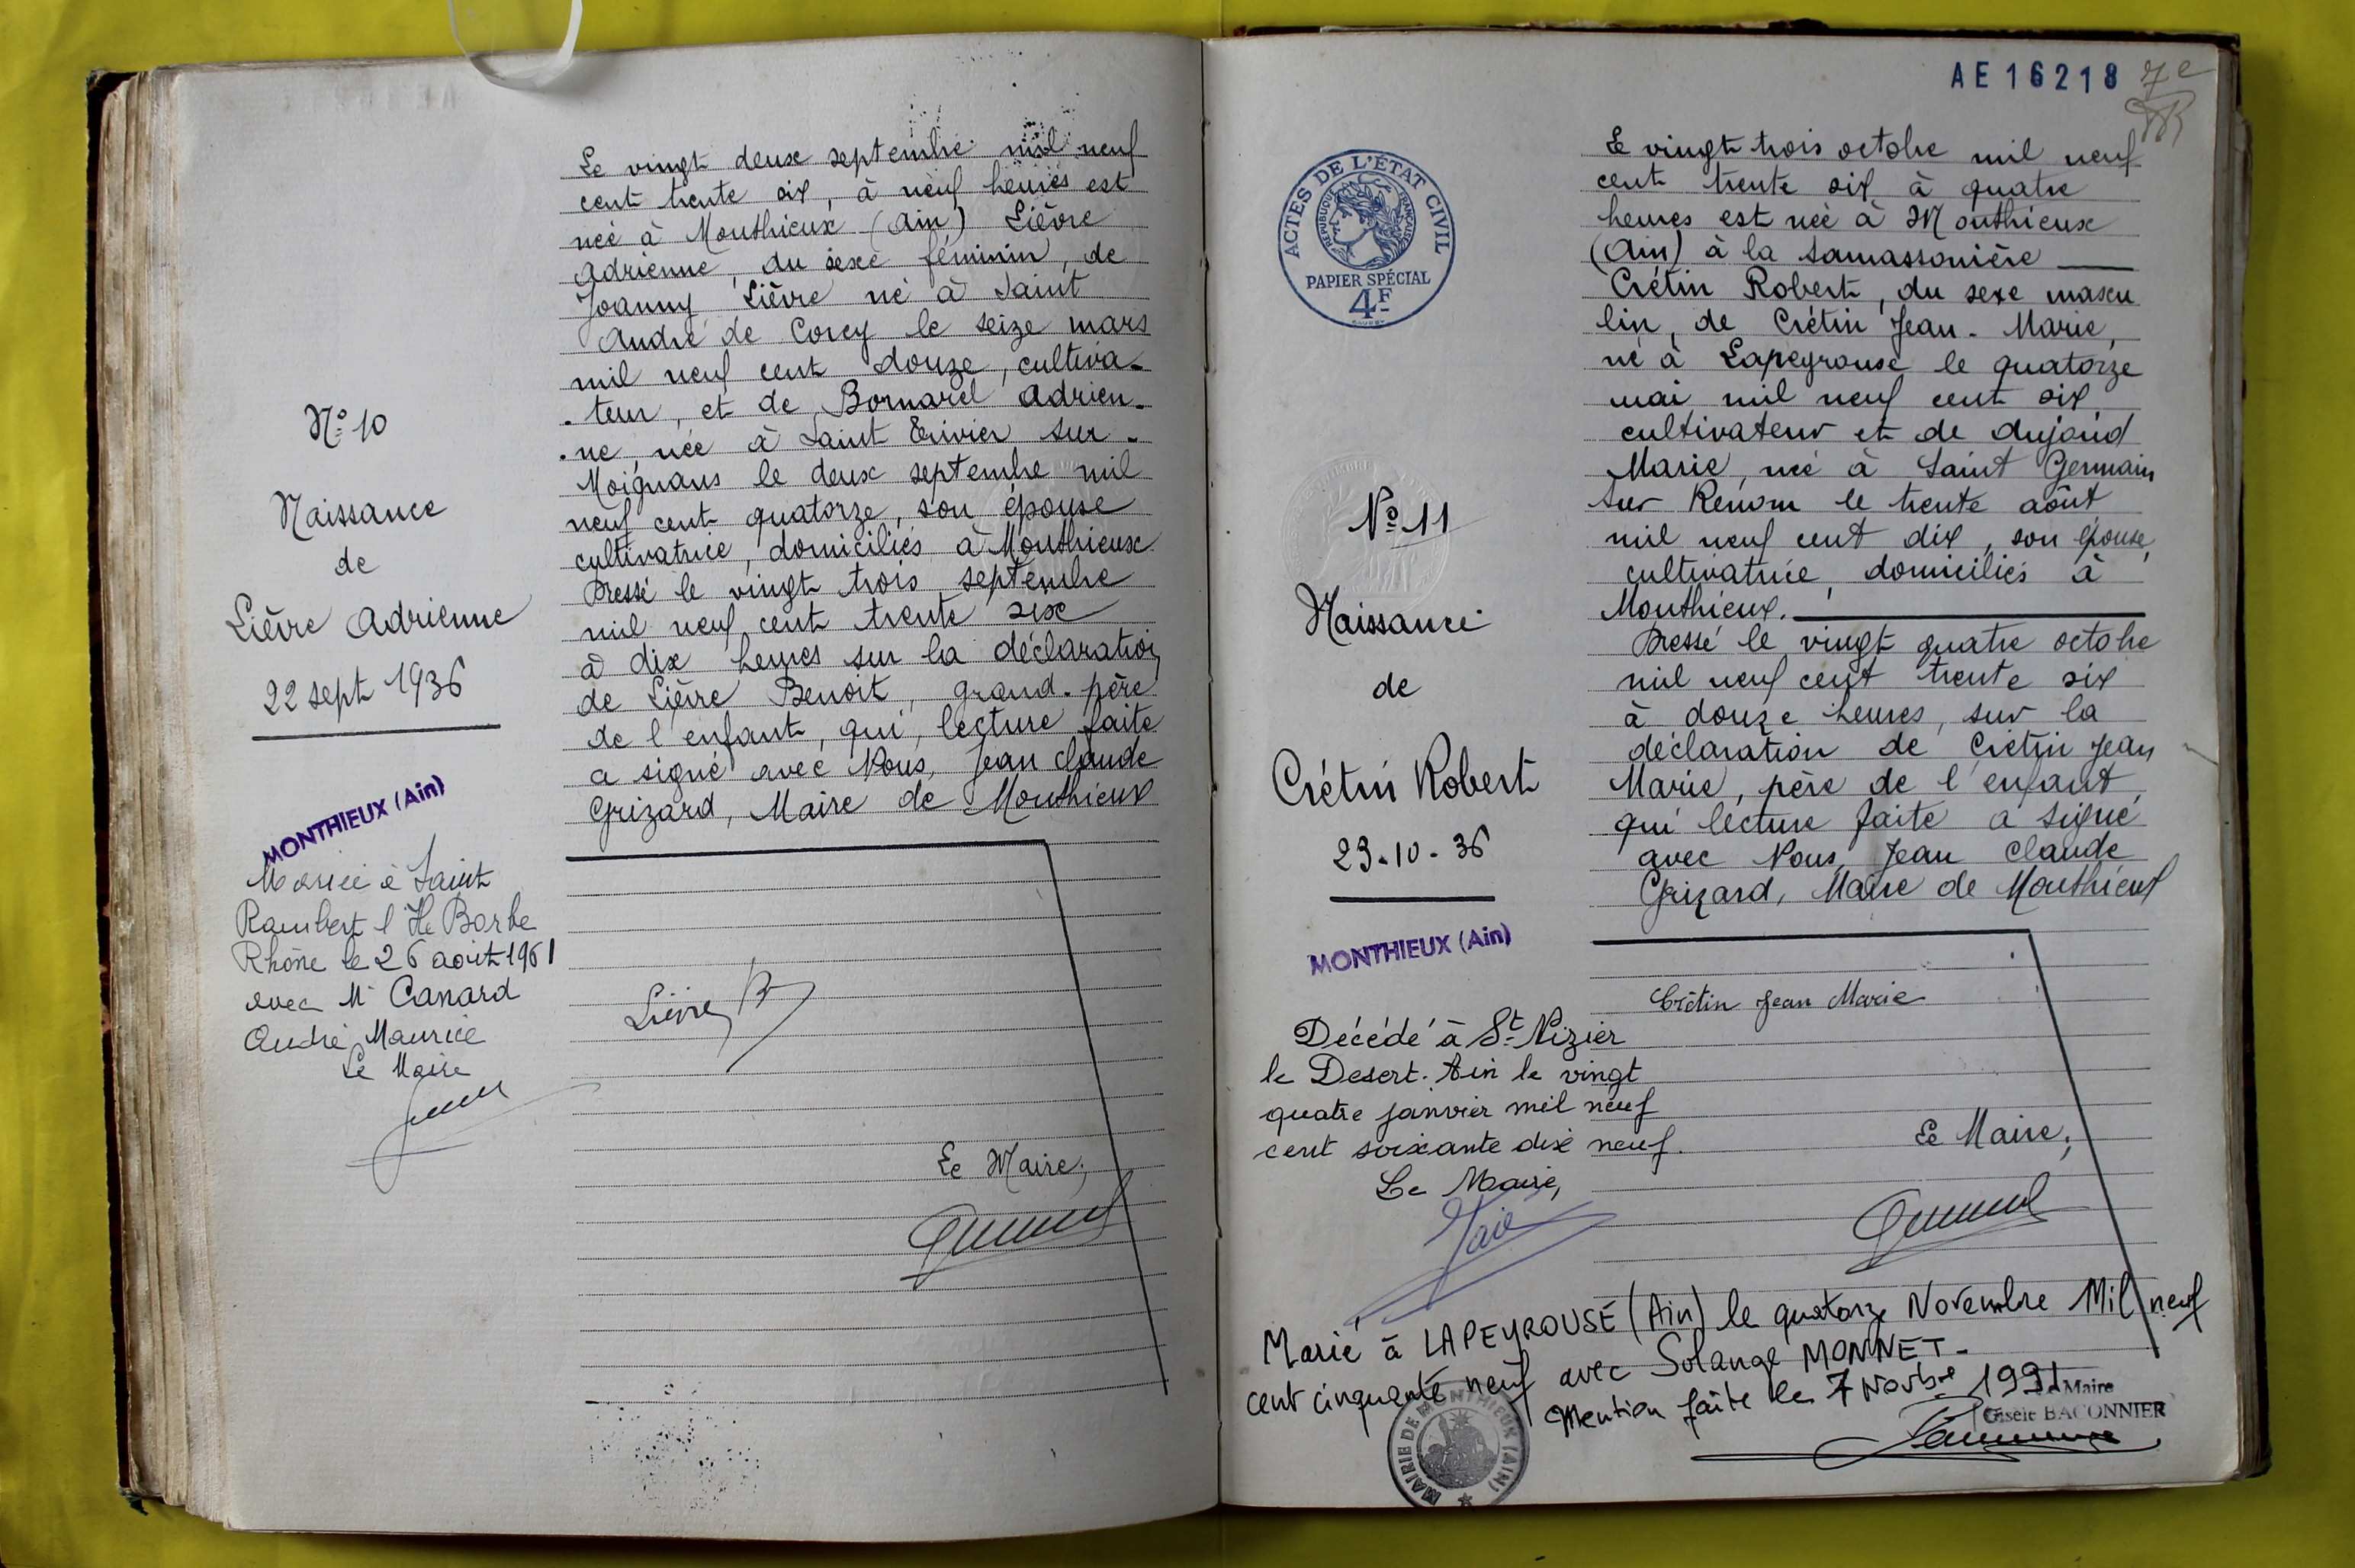 N° 10
Naissance
de
Lièvre Adrienne
22 sept 1936
MONTHIEUX (Ain)
Mariée à Saint
Rambert l'Ile Barbe
Rhône le 26 août 1961
avec Mr Canard
André Maurice
Le Maire
Le vingt deux septembre mil neuf
cent trente six, à neuf heures est
née à Monthieux (Ain) Lièvre
Adrienne, du sexe féminin, de
Joanny Lièvre né à Saint
André de Corcy le seize mars
mil neuf cent douze, cultiva-
-teur, et de Bornarel Adrien-
-ne, née à Saint Trivier sur-
Moignans le deux septembre mil
neuf cent quatorze, son épouse
cultivatrice, domiciliés à Monthieux
Dressé le vingt trois septembre
mil neuf cent trente six
à dix heures sur la déclaration
de Lièvre Benoit, grand-père
de l'enfant, qui, lecture faite
a signé avec Nous, Jean Claude
Grizard, Maire de Monthieux
Lièvre B
Le Maire,
AE16218
7e
ACTES DE L'ÉTAT CIVIL
RÉPUBLIQUE FRANÇAISE
PAPIER SPÉCIAL
4F
N° 11
Naissance
de
Crétin Robert
23-10-36
MONTHIEUX (Ain)
Décédé à St Nizier
le Desert. Ain le vingt
quatre janvier mil neuf
cent soixante dix neuf.
Le Maire,
Le vingt trois octobre mil neuf
cent trente six à quatre
heures est né à Monthieux
(Ain) à la Samassonière
Crétin Robert, du sexe mascu
lin, de Crétin Jean-Marie,
né à Lapeyrouse le quatorze
mai mil neuf cent six
cultivateur et de Dujond
Marie, née à Saint Germain
sur Renom le trente août
mil neuf cent dix, son épouse,
cultivatrice, domiciliés à
Monthieux.
Dressé le vingt quatre octobre
mil neuf cent trente six
à douze heures, sur la
déclaration de Crétin Jean
Marie, père de l'enfant,
qui lecture faite a signé
avec Nous, Jean Claude
Grizard, Maire de Monthieux
Crétin Jean Marie
Le Maire,
Marié à LAPEYROUSE (Ain) le quatorze Novembre Mil neuf
cent cinquante neuf avec Solange MONNET-
Mention faite le 7 Novbre 1991
Le Maire
Gisèle BACONNIER
MAIRIE DE MONTHIEUX (AIN)